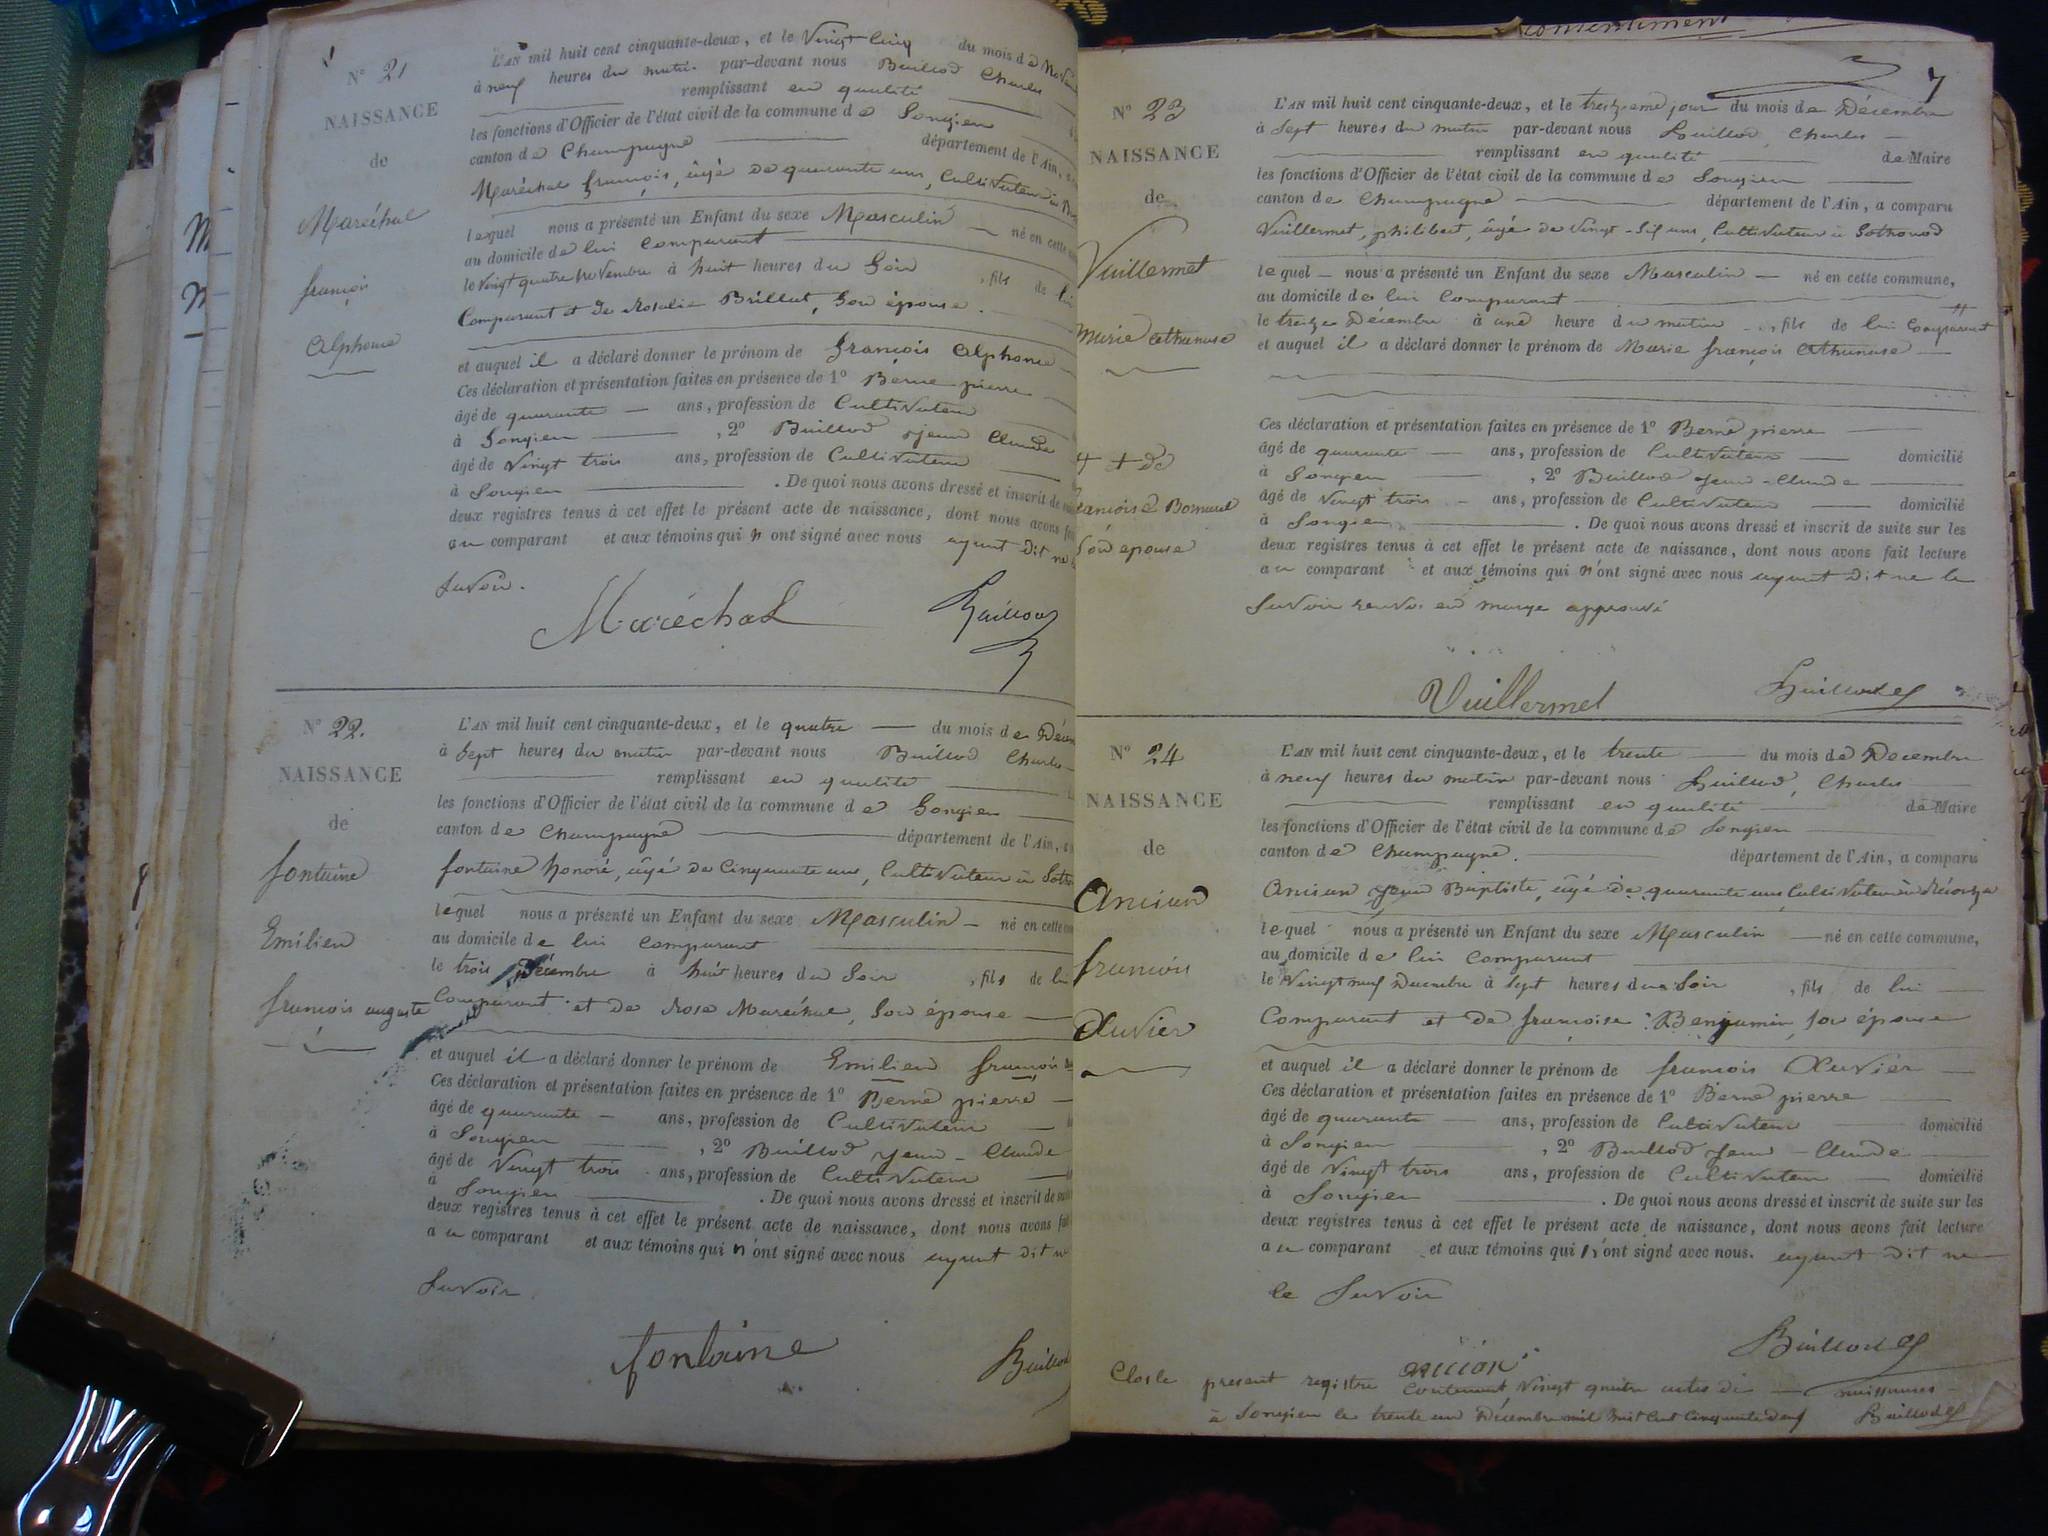 N° 21
NAISSANCE
de
Maréchal
françois
Alphonse
L'AN mil huit cent cinquante-deux, et le Vingt Cinq du mois de
à neuf heures du matin par-devant nous Buillod Charles
remplissant en qualité
les fonctions d'Officier de l'état civil de la commune de Songieu
canton de Champagne département de l'Ain,
Maréchal françois, âgé de quarante ans, Cultivateur
lequel nous a présenté un Enfant du sexe Masculin né en cette
au domicile de lui Comparant
le Vingt quatre Novembre à huit heures du Soir, fils de lui
Comparant et de Rosalie Brillat, Son épouse.
et auquel il a déclaré donner le prénom de françois Alphonse
Ces déclaration et présentation faites en présence de 1° Berne pierre
âgé de quarante ans, profession de Cultivateur
à Songieu, 2° Buillod Jean Claude
âgé de Vingt trois ans, profession de Cultivateur
à Songieu. De quoi nous avons dressé et inscrit de
deux registres tenus à cet effet le présent acte de naissance, dont nous avons
au comparant et aux témoins qui n'ont signé avec nous ayant dit ne
Savoir.
Maréchal Buillod
N° 22.
NAISSANCE
de
fontaine
Emilien
françois auguste
L'AN mil huit cent cinquante-deux, et le quatre du mois de
à Sept heures du matin par-devant nous Buillod Charles
remplissant en qualité
les fonctions d'Officier de l'état civil de la commune de Songieu
canton de Champagne département de l'Ain,
fontaine honoré, âgé de Cinquante ans, Cultivateur à
lequel nous a présenté un Enfant du sexe Masculin né en cette
au domicile de lui Comparant
le trois Décembre à huit heures du Soir, fils de lui
Comparant et de Rose Maréchal, Son épouse
et auquel il a déclaré donner le prénom de Emilien françois
Ces déclaration et présentation faites en présence de 1° Berne pierre
âgé de quarante ans, profession de Cultivateur
à Songieu, 2° Buillod Jean-Claude
âgé de Vingt trois ans, profession de Cultivateur
à Songieu. De quoi nous avons dressé et inscrit de
deux registres tenus à cet effet le présent acte de naissance, dont nous avons
au comparant et aux témoins qui n'ont signé avec nous ayant dit
Savoir
fontaine Buillod
consentiment
7
N° 23
NAISSANCE
de
Vuillermet
Marie Athanase
# + de
françoise
Son épouse
L'AN mil huit cent cinquante-deux, et le treizième jour du mois de Décembre
à Sept heures du matin par-devant nous Buillod, Charles
remplissant en qualité de Maire
les fonctions d'Officier de l'état civil de la commune de Songieu
canton de Champagne département de l'Ain, a comparu
Vuillermet, philibert, âgé de Vingt-Six ans, Cultivateur à Sothonod
lequel nous a présenté un Enfant du sexe Masculin né en cette commune,
au domicile de lui Comparant
le treize Décembre à une heure du matin, fils de lui Comparant #
et auquel il a déclaré donner le prénom de Marie françois Athanase
Ces déclaration et présentation faites en présence de 1° Berne pierre
âgé de quarante ans, profession de Cultivateur domicilié
à Songieu, 2° Buillod Jean-Claude
âgé de Vingt trois ans, profession de Cultivateur domicilié
à Songieu. De quoi nous avons dressé et inscrit de suite sur les
deux registres tenus à cet effet le présent acte de naissance, dont nous avons fait lecture
au comparant et aux témoins qui n'ont signé avec nous ayant dit ne le
Savoir renvoi en marge approuvé
Vuillermet Buillod
N° 24
NAISSANCE
de
Ancian
françois
Xavier
L'AN mil huit cent cinquante-deux, et le trente du mois de Decembre
à neuf heures du matin par-devant nous Buillod, Charles
remplissant en qualité de Maire
les fonctions d'Officier de l'état civil de la commune de Songieu
canton de Champagne. département de l'Ain, a comparu
Ancian Jean Baptiste, âgé de quarante ans, Cultivateur à
lequel nous a présenté un Enfant du sexe Masculin né en cette commune,
au domicile de lui Comparant
le Vingt neuf Decembre à Sept heures du Soir, fils de lui
Comparant et de françoise Benjamin, Son épouse
et auquel il a déclaré donner le prénom de françois Xavier
Ces déclaration et présentation faites en présence de 1° Berne pierre
âgé de quarante ans, profession de Cultivateur domicilié
à Songieu, 2° Buillod Jean-Claude
âgé de Vingt trois ans, profession de Cultivateur domicilié
à Songieu. De quoi nous avons dressé et inscrit de suite sur les
deux registres tenus à cet effet le présent acte de naissance, dont nous avons fait lecture
au comparant et aux témoins qui n'ont signé avec nous. ayant dit ne
le Savoir
Buillod
ancian
Clos le present registre Contenant Vingt quatre actes de naissances
à Songieu le trente un Décembre mil huit Cent Cinquante deux Buillod